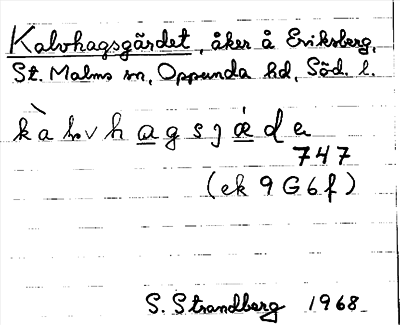 Kalvhagsgärdet, åker å Eriksberg,
St. Malms sn, Oppunda hd, Söd. l.
kàlvhagsjǽde
747
(ek 9G6f)
S. Strandberg 1968